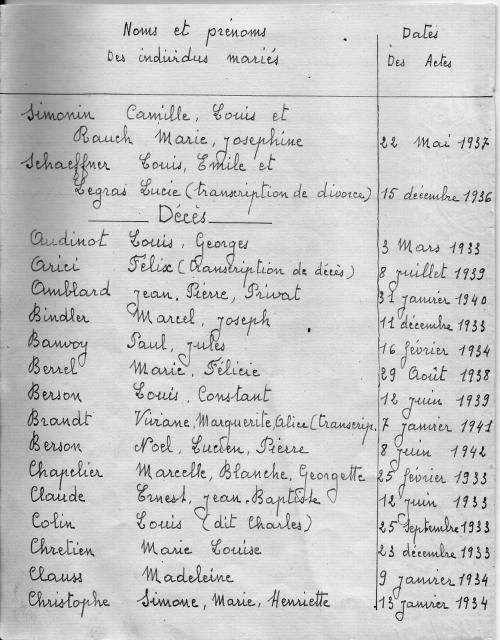 Noms et prénoms Dates
Des individus mariés Des Actes
Simonin Camille, Louis et
Rauch Marie, Josephine 22 Mai 1937
Schaeffner Louis, Emile et
Legras Lucie (transcription de divorce) 15 décembre 1936
Décès
Audinot Louis, Georges 3 Mars 1933
Arici Félix (transcription de décès) 8 juillet 1939
Amblard Jean-Pierre, Privat 31 janvier 1940
Bindler Marcel, Joseph 11 décembre 1933
Banvoy Paul, Jules 16 février 1934
Berrel Marie, Félicie 29 Août 1938
Berson Louis, Constant 12 juin 1939
Brandt Viviane, Marguerite, Alice (transcrip. 7 janvier 1941
Berson Noel, Lucien, Pierre 8 juin 1942
Chapelier Marcelle, Blanche, Georgette 25 février 1933
Claude Ernest, Jean-Baptiste 12 juin 1933
Colin Louis (dit Charles) 25 septembre 1933
Chretien Marie Louise 23 décembre 1933
Clauss Madeleine 9 janvier 1934
Christophe Simone, Marie, Henriette 13 janvier 1934